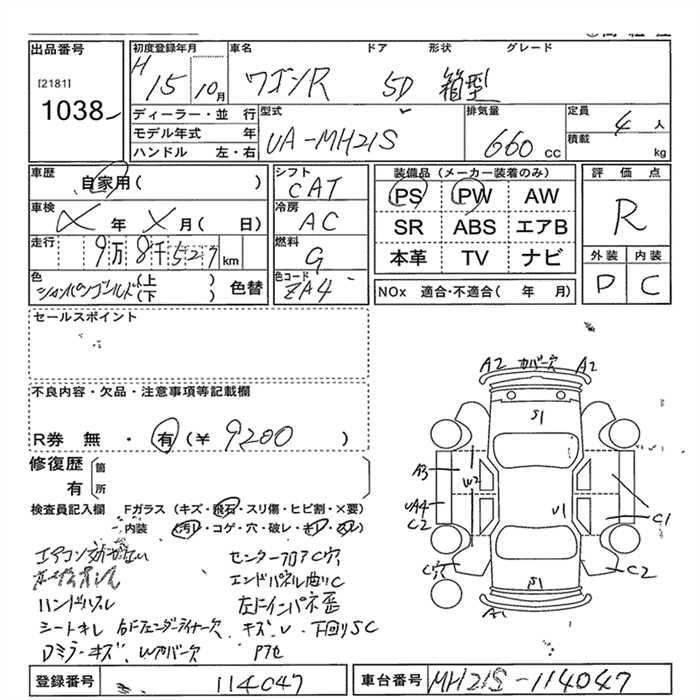 出品番号
[2181]
1038
初度登録年月 車名 ドア 形状 グレード
H 15 10月 ワゴンR 5D 箱型
ディーラー・並 行
モデル年式 年
ハンドル 左・右
型式
UA-MH21S
排気量
660 cc
定員
4 人
積載
kg
車歴
自家用( )
車検
年 X 月( 日)
走行
9万8千527 km
色
シャンパンゴールド(上 下) 色替
シフト
CAT
冷房
AC
燃料
G
色コード
ZA4
装備品(メーカー装着のみ)
PS PW AW
SR ABS エアB
本革 TV ナビ
NOx 適合・不適合( 年 月)
評価点
R
外装 内装
D C
セールスポイント
不良内容・欠品・注意事項等記載欄
R券 無 ・ 有 (¥ 9200 )
修復歴 箇
有 所
検査員記入欄 Fガラス(キズ・飛石・スリ傷・ヒビ割・×要)
内装 (汚レ・コゲ・穴・破レ・キレ・スレ)
ハンドルスレ
シートキレ 右Fフェンダーライナー欠
Dミラーキズ Wカバー欠
センターフロアC穴
エンドパネル曲りC
キズ、V 下回りSC
A2 カバー欠 A2
S1
A3
W2
UA4
C2
U1
C1
C穴
C2
S1
A1
登録番号 114047
車台番号 MH21S-114047